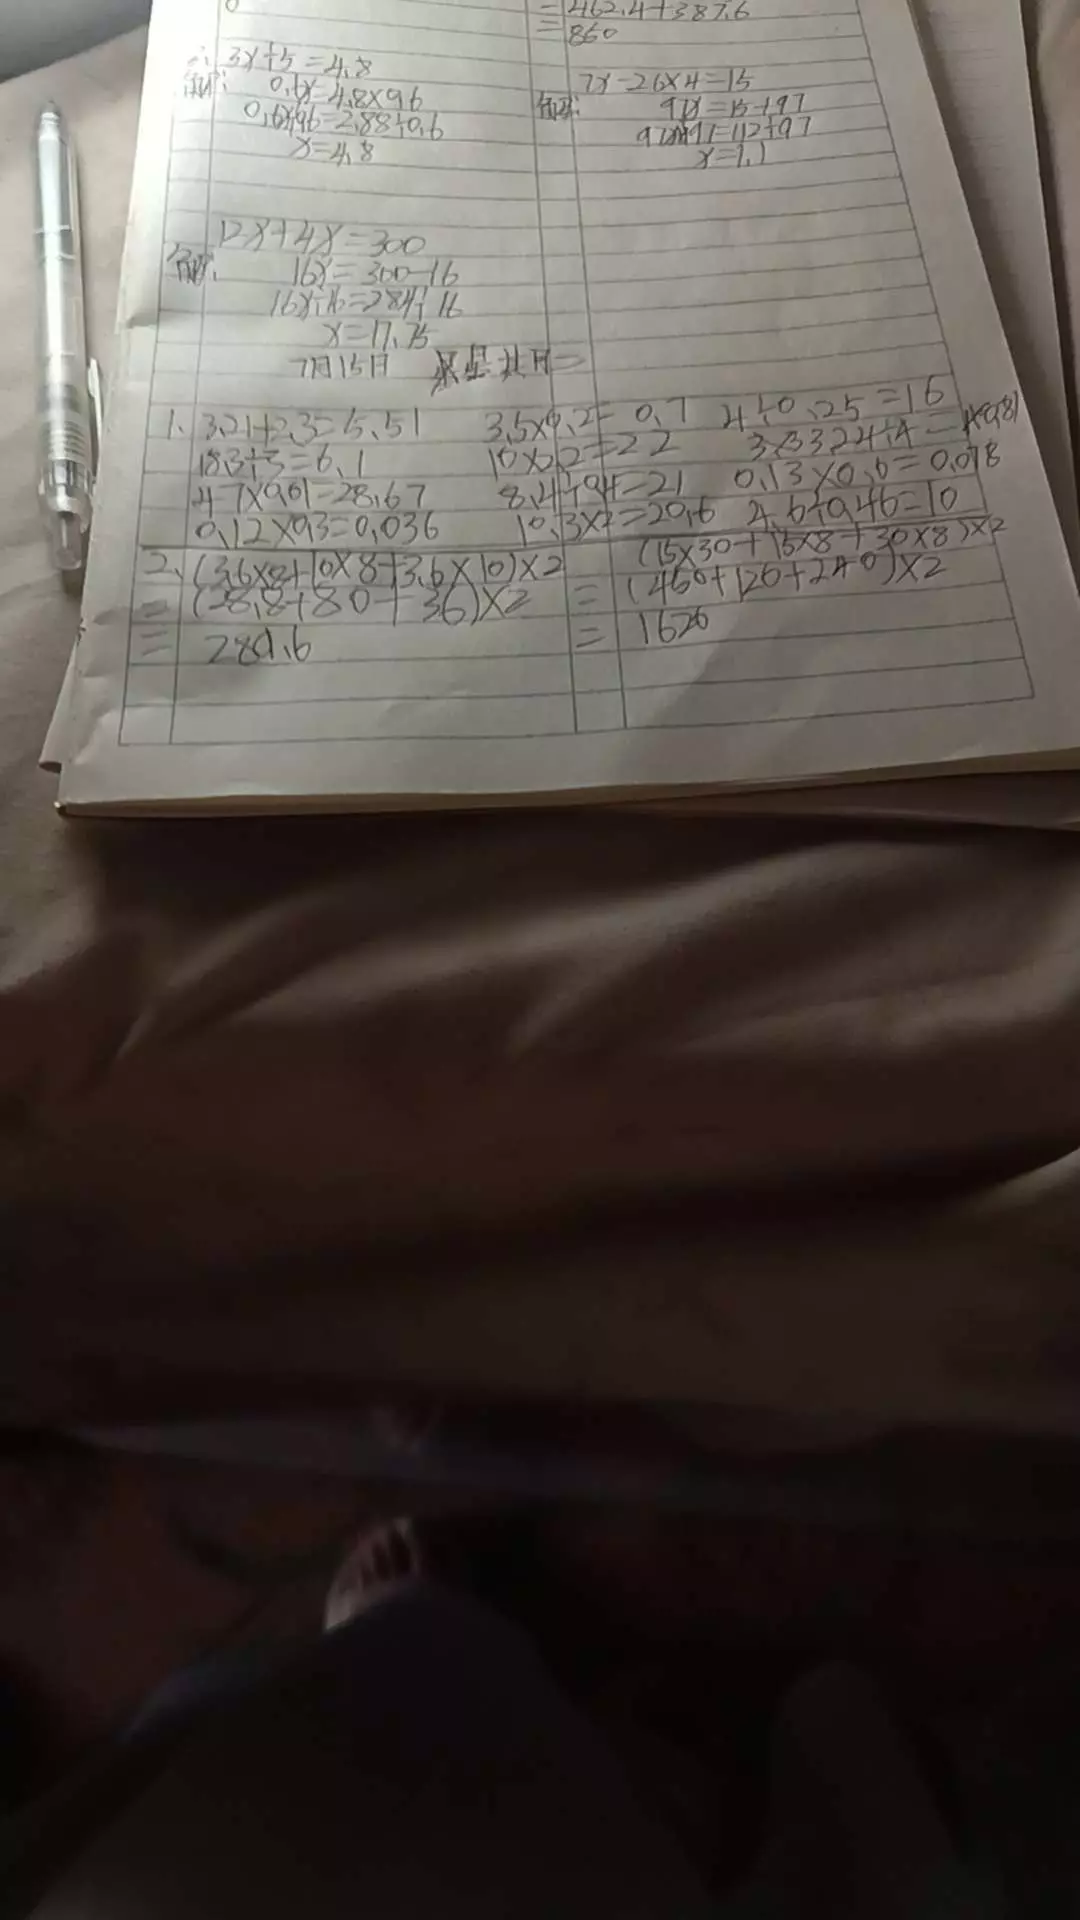 =462.4+387.6
=850
3x÷5=4.8
解: 0.6x=4.8×0.6
0.6x÷0.6=2.88÷0.6
x=4.8
7x-26×4=15
解:
x=1.1
12x+4x=300
解: 16x=300-16
16x÷16=284÷16
x=17.75
7月15日 星期
1. 3.21+2.3=5.51 3.5×0.2=0.7 4÷0.25=16
18.3÷3=6.1 10×2.2=22
47×0.61=28.67 8.4÷0.4=21 0.13×0.6=0.078
0.12×0.3=0.036 10.3×2=20.6 4.6÷0.46=10
2. (3.6×8+10×8+3.6×10)×2
=(28.8+80+36)×2
=289.6
(15×30+15×8+30×8)×2
=(450+120+240)×2
=1620